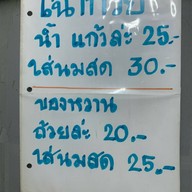 น้ำ แก้วล่ะ 25.-
ใส่นมสด 30.-
ของหวาน
ถ้วยล่ะ 20.-
ใส่นมสด 25.-